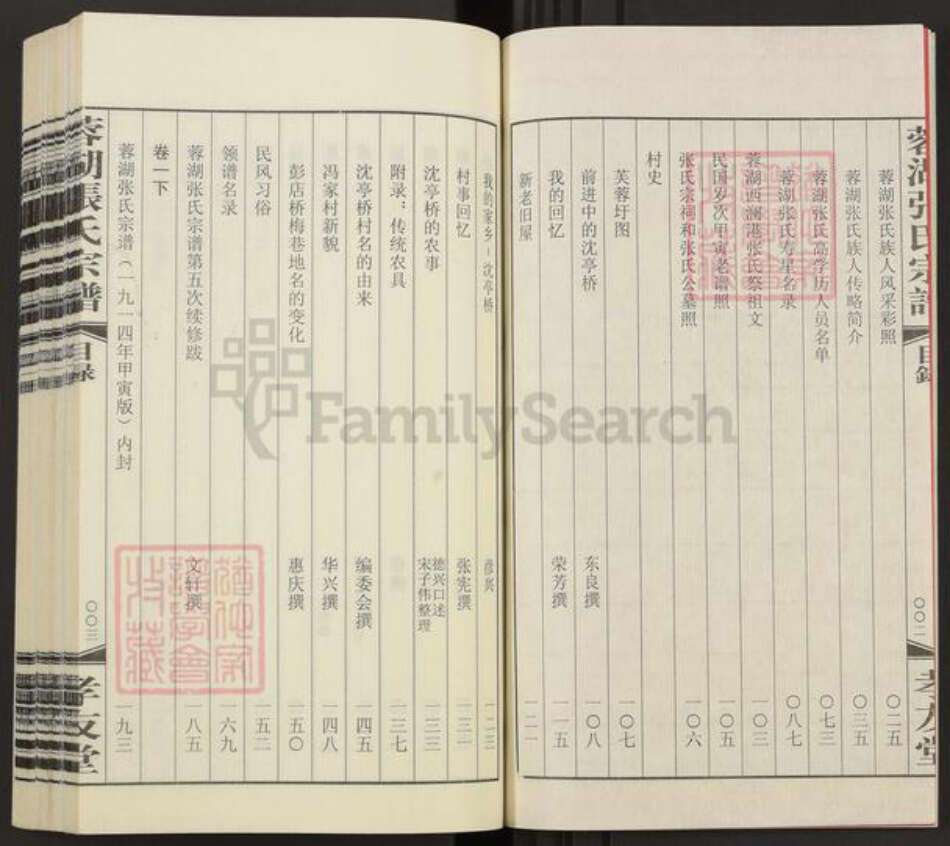 蓉湖张氏宗谱
目录
〇〇二
孝友堂
蓉湖张氏族人风采彩照 〇二五
蓉湖张氏族人传略简介 〇三五
蓉湖张氏高学历人员名单 〇七三
蓉湖张氏寿星名录 〇八七
蓉湖西澜港张氏祭祖文 一〇三
民国岁次甲寅老谱照 一〇五
张氏宗祠和张氏公墓照 一〇六
村史
芙蓉圩图 一〇七
前进中的沈亭桥 东良撰 一〇八
我的回忆 荣芳撰 一一五
新老旧屋 一二一
我的家乡－沈亭桥 彦兴 一二三
村事回忆 张宪撰 一三一
沈亭桥的农事 德兴口述 宋子伟整理 一三三
附录：传统农具 一三七
沈亭桥村名的由来 编委会撰 一四五
冯家村新貌 华兴撰 一四八
彭店桥梅巷地名的变化 惠庆撰 一五〇
民风习俗 一五二
领谱名录 一六九
蓉湖张氏宗谱第五次续修跋 文轩撰 一八五
卷一下
蓉湖张氏宗谱（一九一四年甲寅版）内封 一九三
蓉湖張氏宗譜
目录
〇〇三
孝友堂
FamilySearch